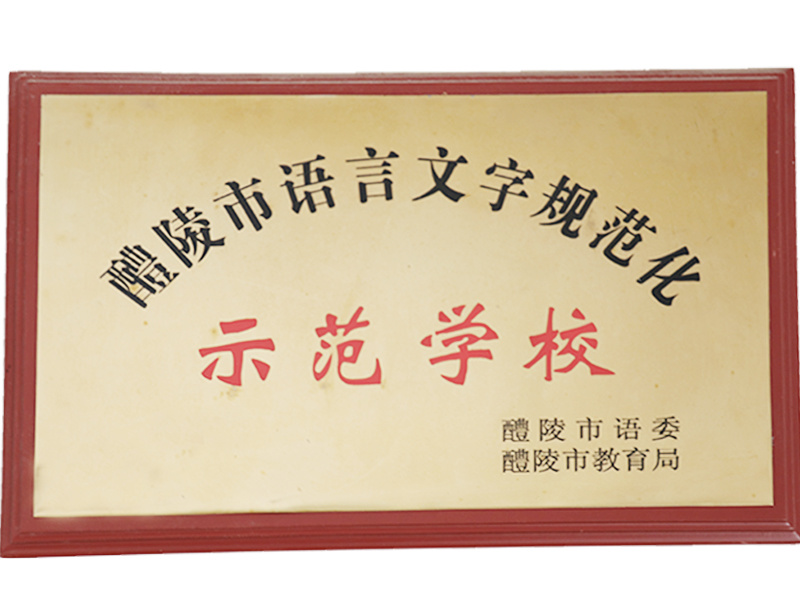 醴陵市语言文字规范化
示范学校
醴陵市语委
醴陵市教育局